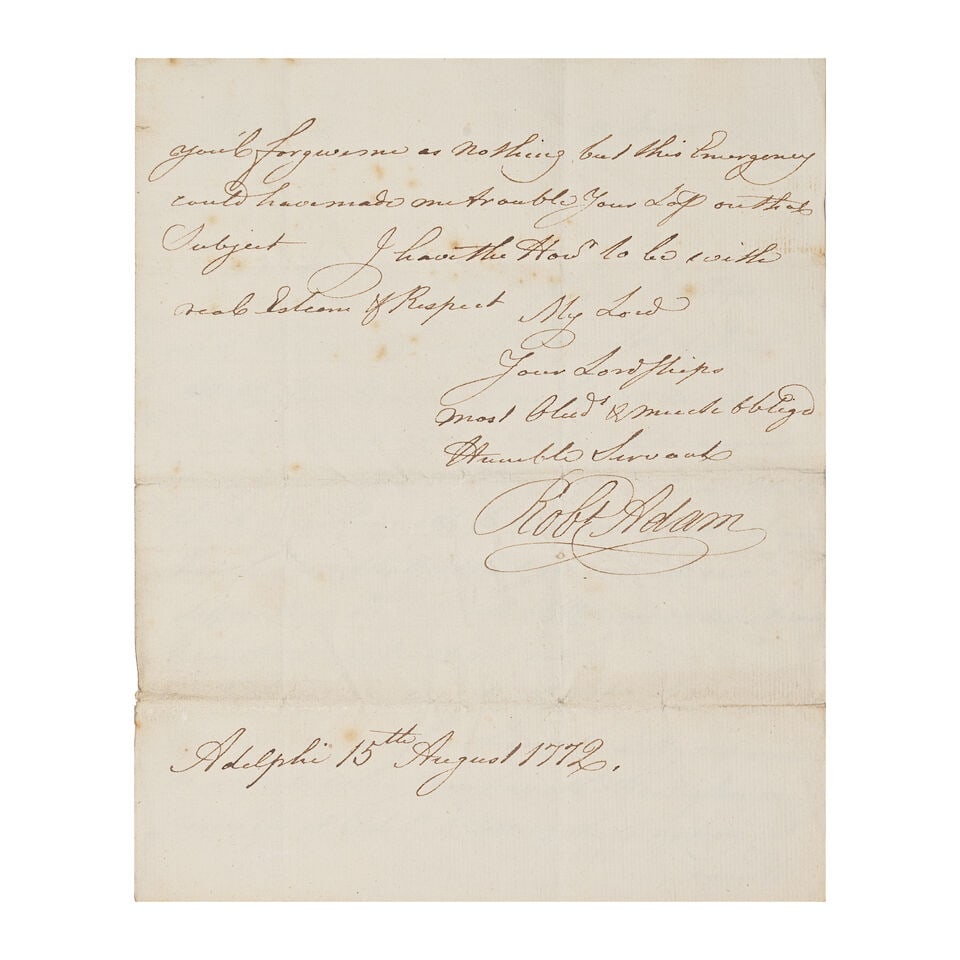 you'l forgive me as nothing but this Emergency
could have made me trouble Your Lo/p on that
Subject I have the Honr to be with
real Esteem & Respect My Lord
Your Lordships
most Obedt & much obliged
Humble Servant
Robt Adam
Adelphi 15th August 1772.